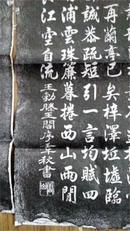 再蘭亭已矣梓澤坵墟臨
誠恭疏短引一言均賦四
南浦雲珠簾暮捲西山雨閒
長江空自流
王勃滕王閣序 年秋書